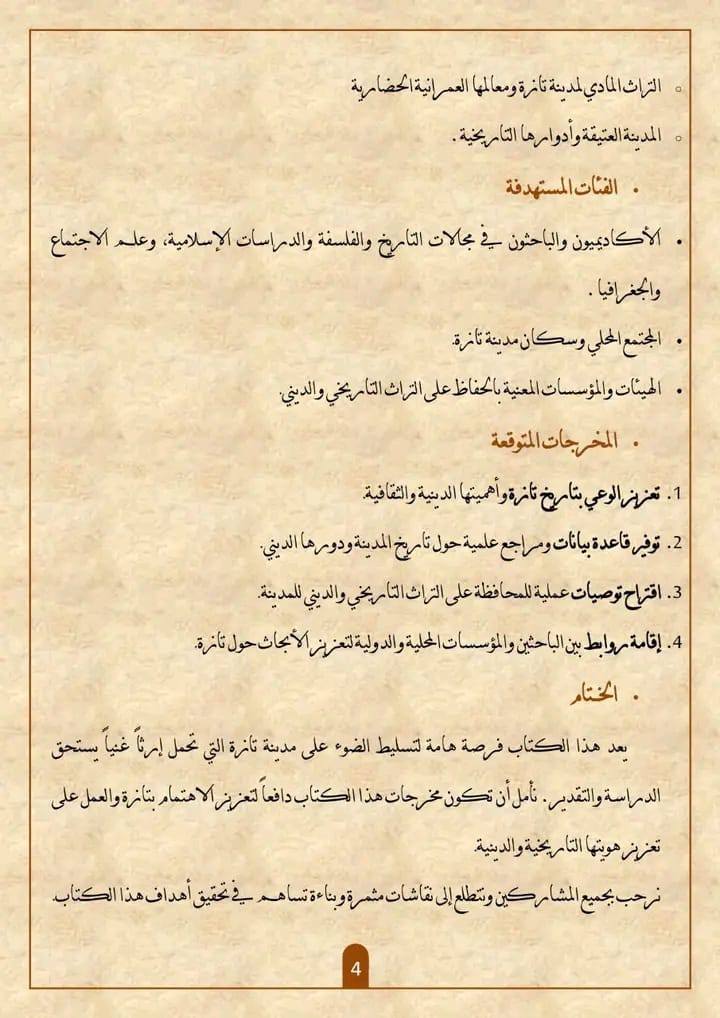 ○ التراث المادي لمدينة تازة ومعالمها العمرانية الحضارية
○ المدينة العتيقة وأدوارها التاريخية .
• الفئات المستهدفة
• الأكاديميون والباحثون في مجالات التاريخ والفلسفة والدراسات الإسلامية، وعلم الاجتماع
والجغرافيا .
• المجتمع المحلي وسكان مدينة تازة.
• الهيئات والمؤسسات المعنية بالحفاظ على التراث التاريخي والديني.
• المخرجات المتوقعة
1. تعزيز الوعي بتاريخ تازة وأهميتها الدينية والثقافية.
2. توفير قاعدة بيانات ومراجع علمية حول تاريخ المدينة ودورها الديني.
3. اقتراح توصيات عملية للمحافظة على التراث التاريخي والديني للمدينة.
4. إقامة روابط بين الباحثين والمؤسسات المحلية والدولية لتعزيز الأبحاث حول تازة.
• الختام
يعد هذا الكتاب فرصة هامة لتسليط الضوء على مدينة تازة التي تحمل إرثاً غنياً يستحق
الدراسة والتقدير. نأمل أن تكون مخرجات هذا الكتاب دافعاً لتعزيز الاهتمام بتازة والعمل على
تعزيز هويتها التاريخية والدينية.
نرحب بجميع المشاركين ونتطلع إلى نقاشات مثمرة وبناءة تساهم في تحقيق أهداف هذا الكتاب.
4